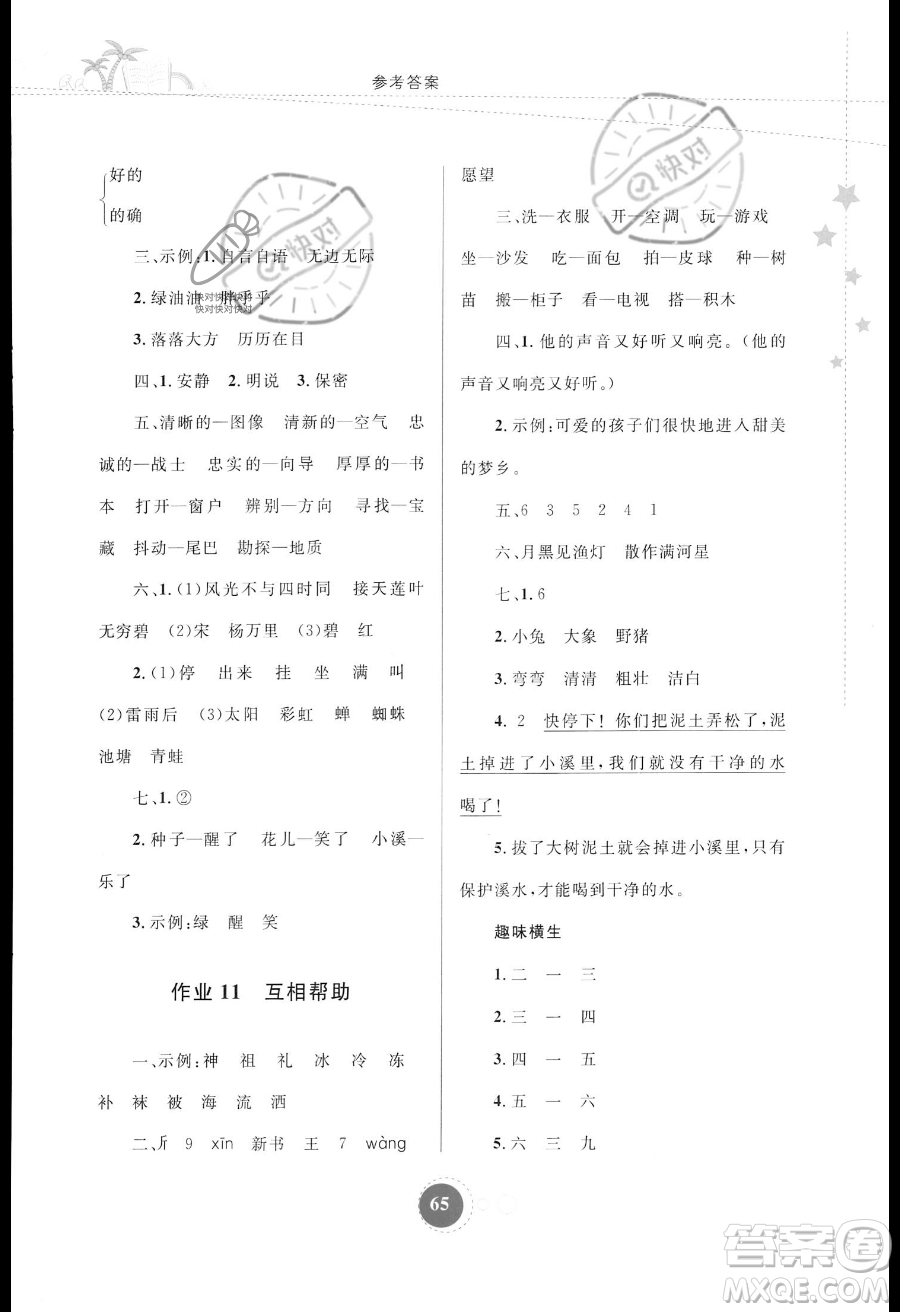 参考答案
好的
的确
三、示例:1.自言自语 无边无际
2.绿油油 胖乎乎
3.落落大方 历历在目
四、1.安静 2.明说 3.保密
五、清晰的—图像 清新的—空气 忠
诚的—战士 忠实的—向导 厚厚的—书
本 打开—窗户 辨别—方向 寻找—宝
藏 抖动—尾巴 勘探—地质
六、1.(1)风光不与四时同 接天莲叶
无穷碧 (2)宋 杨万里 (3)碧 红
2.(1)停 出来 挂 坐 满 叫
(2)雷雨后 (3)太阳 彩虹 蝉 蜘蛛
池塘 青蛙
七、1.②
2.种子—醒了 花儿—笑了 小溪—
乐了
3.示例:绿 醒 笑
作业 11 互相帮助
一、示例:神 祖 礼 冰 冷 冻
补 袜 被 海 流 洒
二、斤 9 xīn 新书 王 7 wàng
愿望
三、洗—衣服 开—空调 玩—游戏
坐—沙发 吃—面包 拍—皮球 种—树
苗 搬—柜子 看—电视 搭—积木
四、1.他的声音又好听又响亮。(他的
声音又响亮又好听。)
2.示例:可爱的孩子们很快地进入甜美
的梦乡。
五、6 3 5 2 4 1
六、月黑见渔灯 散作满河星
七、1.6
2.小兔 大象 野猪
3.弯弯 清清 粗壮 洁白
4.2 快停下!你们把泥土弄松了,泥
土掉进了小溪里,我们就没有干净的水
喝了!
5.拔了大树泥土就会掉进小溪里,只有
保护溪水,才能喝到干净的水。
趣味横生
1.二 一 三
2.三 一 四
3.四 一 五
4.五 一 六
5.六 三 九
65
快对
快对
快对快对快对
快对快对快对
答案圈
MXQE.COM